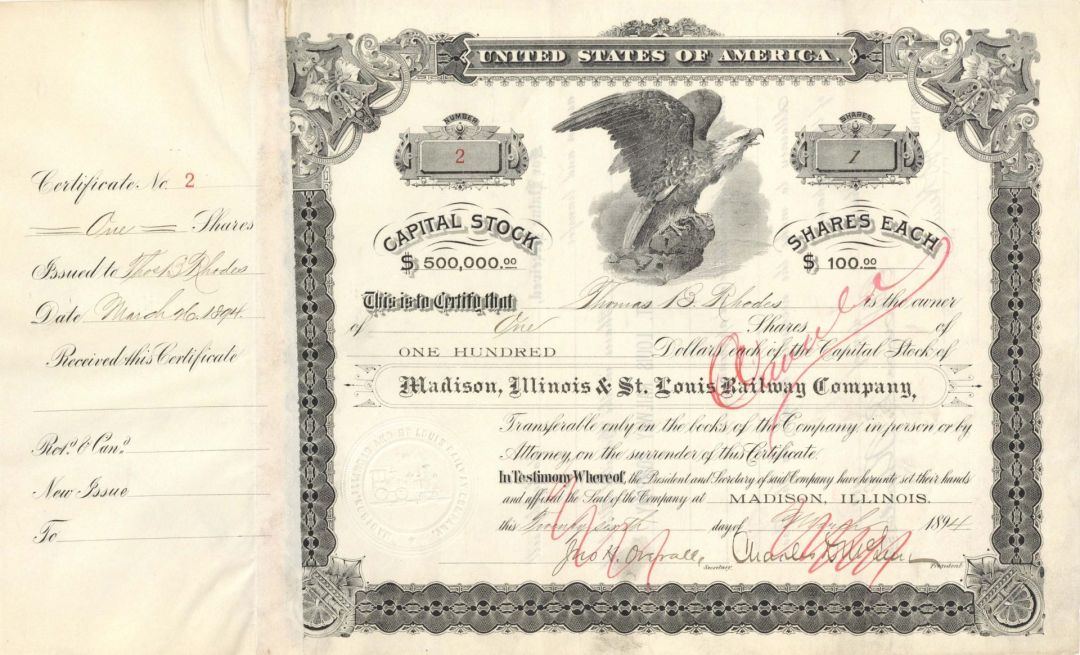 Certificate No. 2
One Shares
Issued to Thos B Rhodes
Date March 26. 1894.
Received this Certificate
Ret.d & Can.d
New Issue
To
UNITED STATES OF AMERICA.
NUMBER
2
SHARES
1
CAPITAL STOCK
$ 500,000.00
SHARES EACH
$ 100.00
This is to Certify that Thomas B. Rhodes is the owner
of One Shares of
ONE HUNDRED Dollars each of the Capital Stock of
Madison, Illinois & St. Louis Railway Company,
Transferable only on the books of the Company, in person or by
Attorney, on the surrender of this Certificate.
In Testimony Whereof, the President and Secretary of said Company have hereunto set their hands
and affixed the Seal of the Company at MADISON, ILLINOIS.
this Twenty sixth day of March 1894
Jno H. Overall, Secretary. Charles President